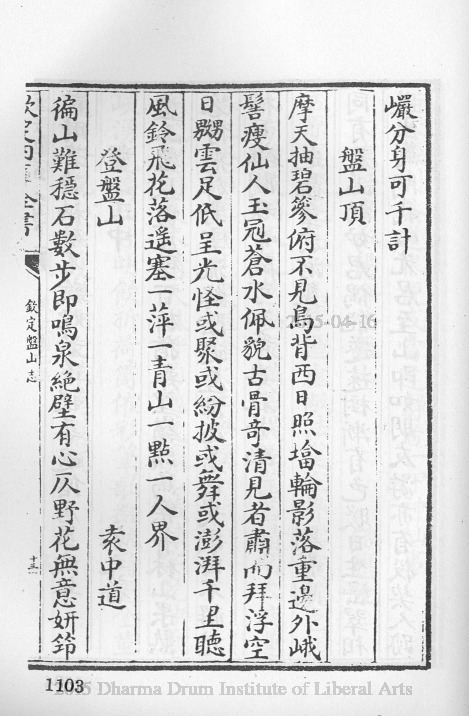 巖分身可千計
盤山頂
摩天抽碧篸俯不見鳥背西日照壋輪影落重邊外峨
髻瘦仙人玉冠蒼水佩貌古骨奇清見者肅而拜浮空
日嬲雲足低呈光怪或聚或紛披或舞或澎湃千里聽
風鈴飛花落遥塞一萍一青山一點一人界
登盤山 袁中道
徧山難穩石數步即鳴泉絶壁有心仄野花無意妍鈴
欽定四庫全書
欽定盤山志
十三
1103
2005-04-16
2005 Dharma Drum Institute of Liberal Arts